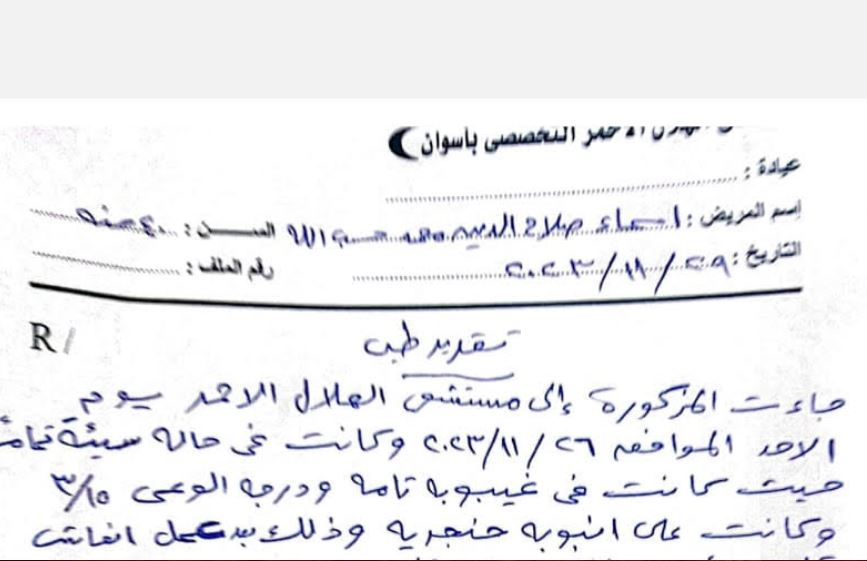 الهلال الأحمر التخصصى بأسوان
عيادة :
إسم المريض : اسماء صلاح الدين محمد حسب الله السن : ٤٠ سنه
التاريخ : ٢٩ / ١١ / ٢٠٢٣ رقم الملف :
R/
تقرير طبى
جاءت المذكورة إلى مستشفى الهلال الاحمر يوم
الاحد الموافق ٢٦ / ١١ / ٢٠٢٣ وكانت فى حاله سيئة تماما
حيث كانت فى غيبوبه تامه ودرجه الوعى ٣/١٥
وكانت على انبوبه حنجريه وذلك بعد عمل انعاش